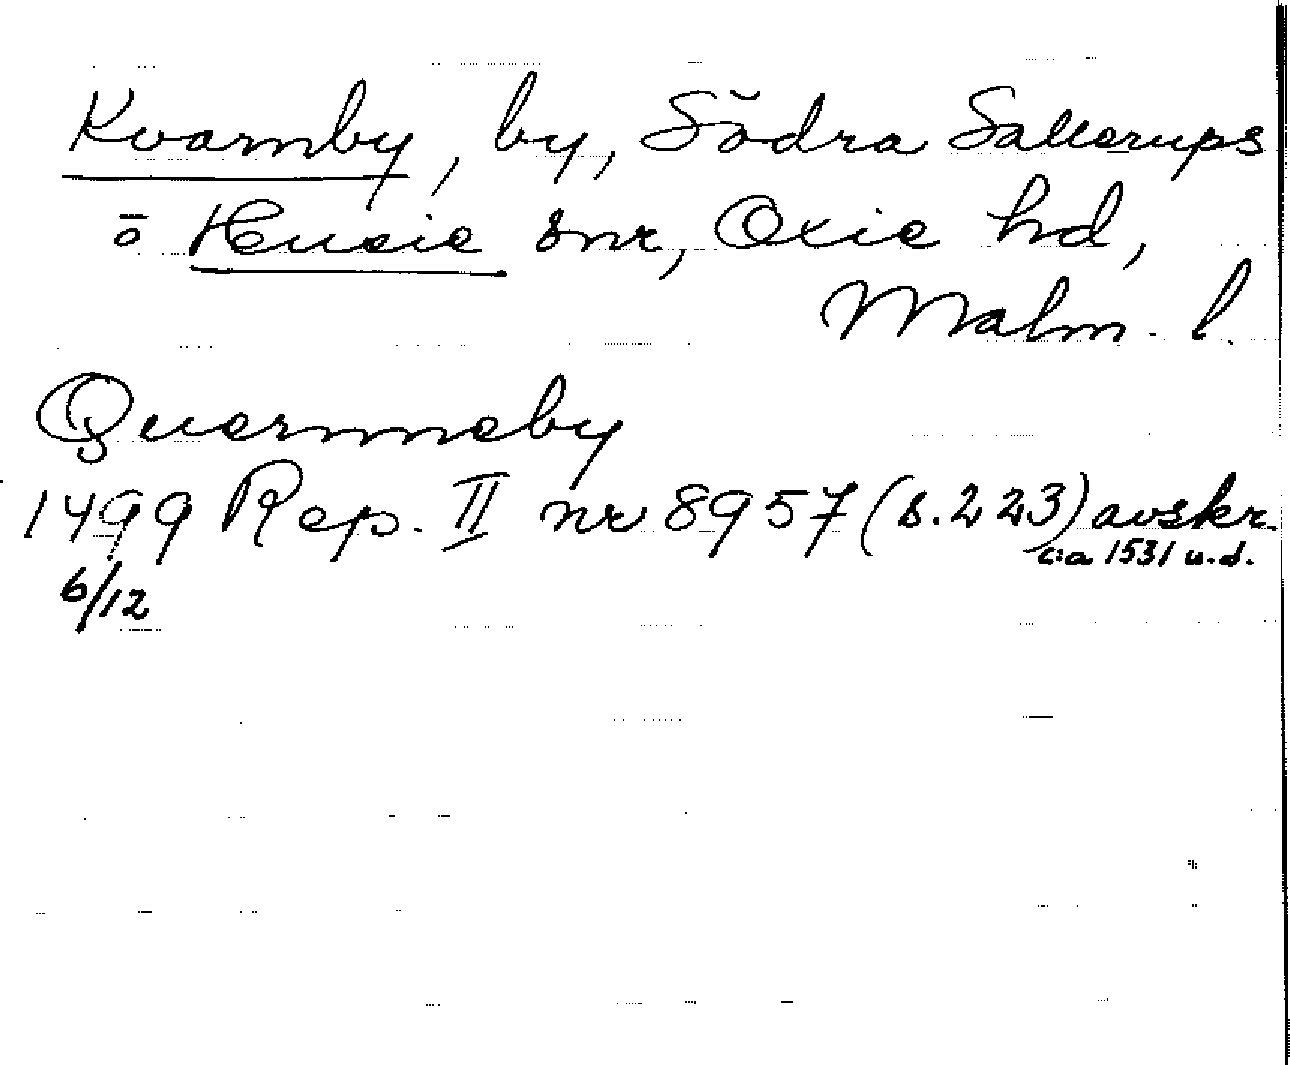 Kvarnby, by, Södra Sallerups
o Husie snr, Oxie hd,
Malm. l.
Quernneby
1499 Rep. II nr 8957 (s. 223) avskr.
c:a 1531 u.d.
6/12